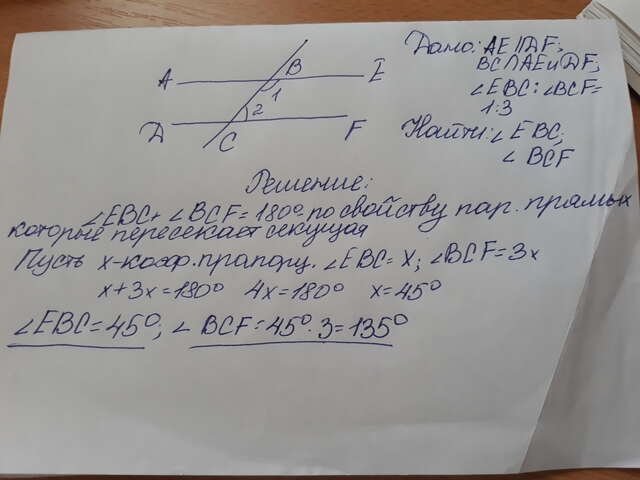 Дано: AE||DF;
BC∩AE и DF;
∠EBC:∠BCF=
1:3
Найти: ∠EBC;
∠BCF
A
B
E
1
D
2
C
F
Решение:
∠EBC+∠BCF=180° по свойству пар. прямых
которые пересекает секущая
Пусть x-коэф. пропорц. ∠EBC=x; ∠BCF=3x
x+3x=180° 4x=180° x=45°
∠EBC=45°; ∠BCF=45°·3=135°